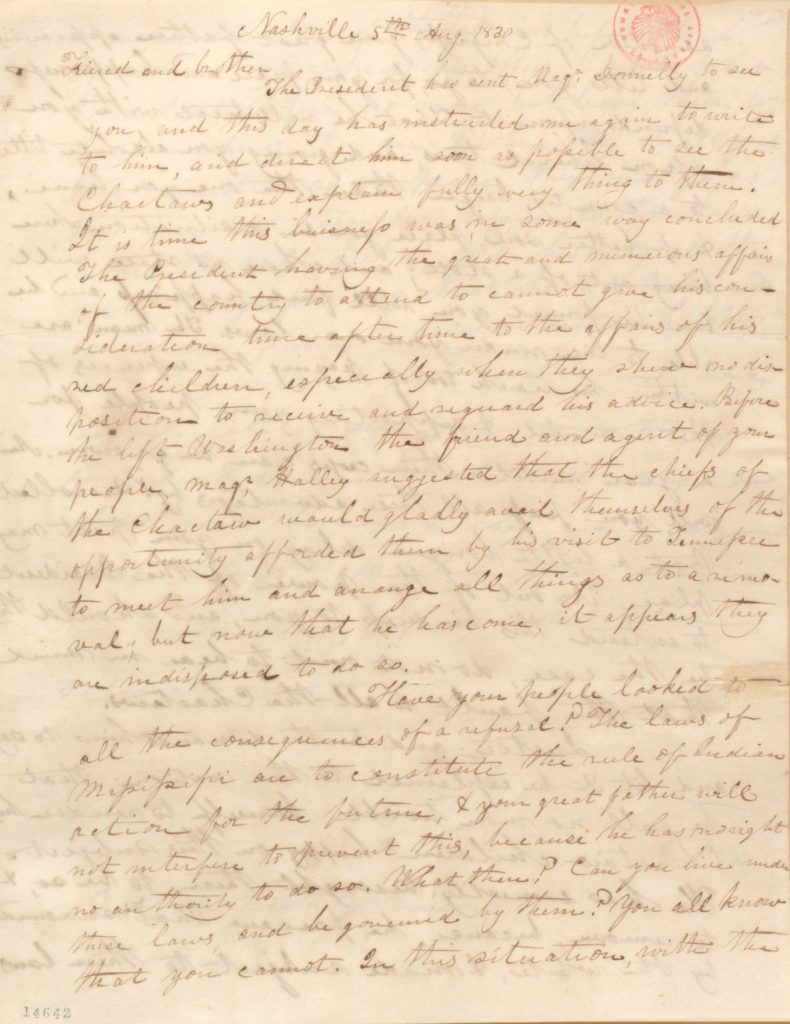 Nashville 5th Aug. 1830
Friend and brother
The President has sent Majr. Donnelly to see
you, and this day has instructed me again to write
to him, and direct him soon as possible to see the
Choctaws and explain fully every thing to them.
It is time this buisness was in some way concluded
The President having the great and numerous affairs
of the country to attend to cannot give his con-
sideration time after time to the affairs of his
red children, especially when they shew no dis-
position to receive and reguard his advice. Before
he left Washington the friend and agent of your
people Majr. Halley suggested that the chiefs of
the Choctaw would gladly avail themselves of the
opportunity afforded them by his visit to Tennessee
to meet him and arrange all things as to a remo-
val; but now that he has come, it appears they
are indisposed to do so.
Have your people looked to
all the consequences of a refuzal? The laws of
Missisippi are to constitute the rule of Indian
action for the future, & your great father will
not interfere to prevent this, because he has no right
no authority to do so. What then? Can you live under
these laws, and be governed by them? You all know
that you cannot. In this situation, with the
14642